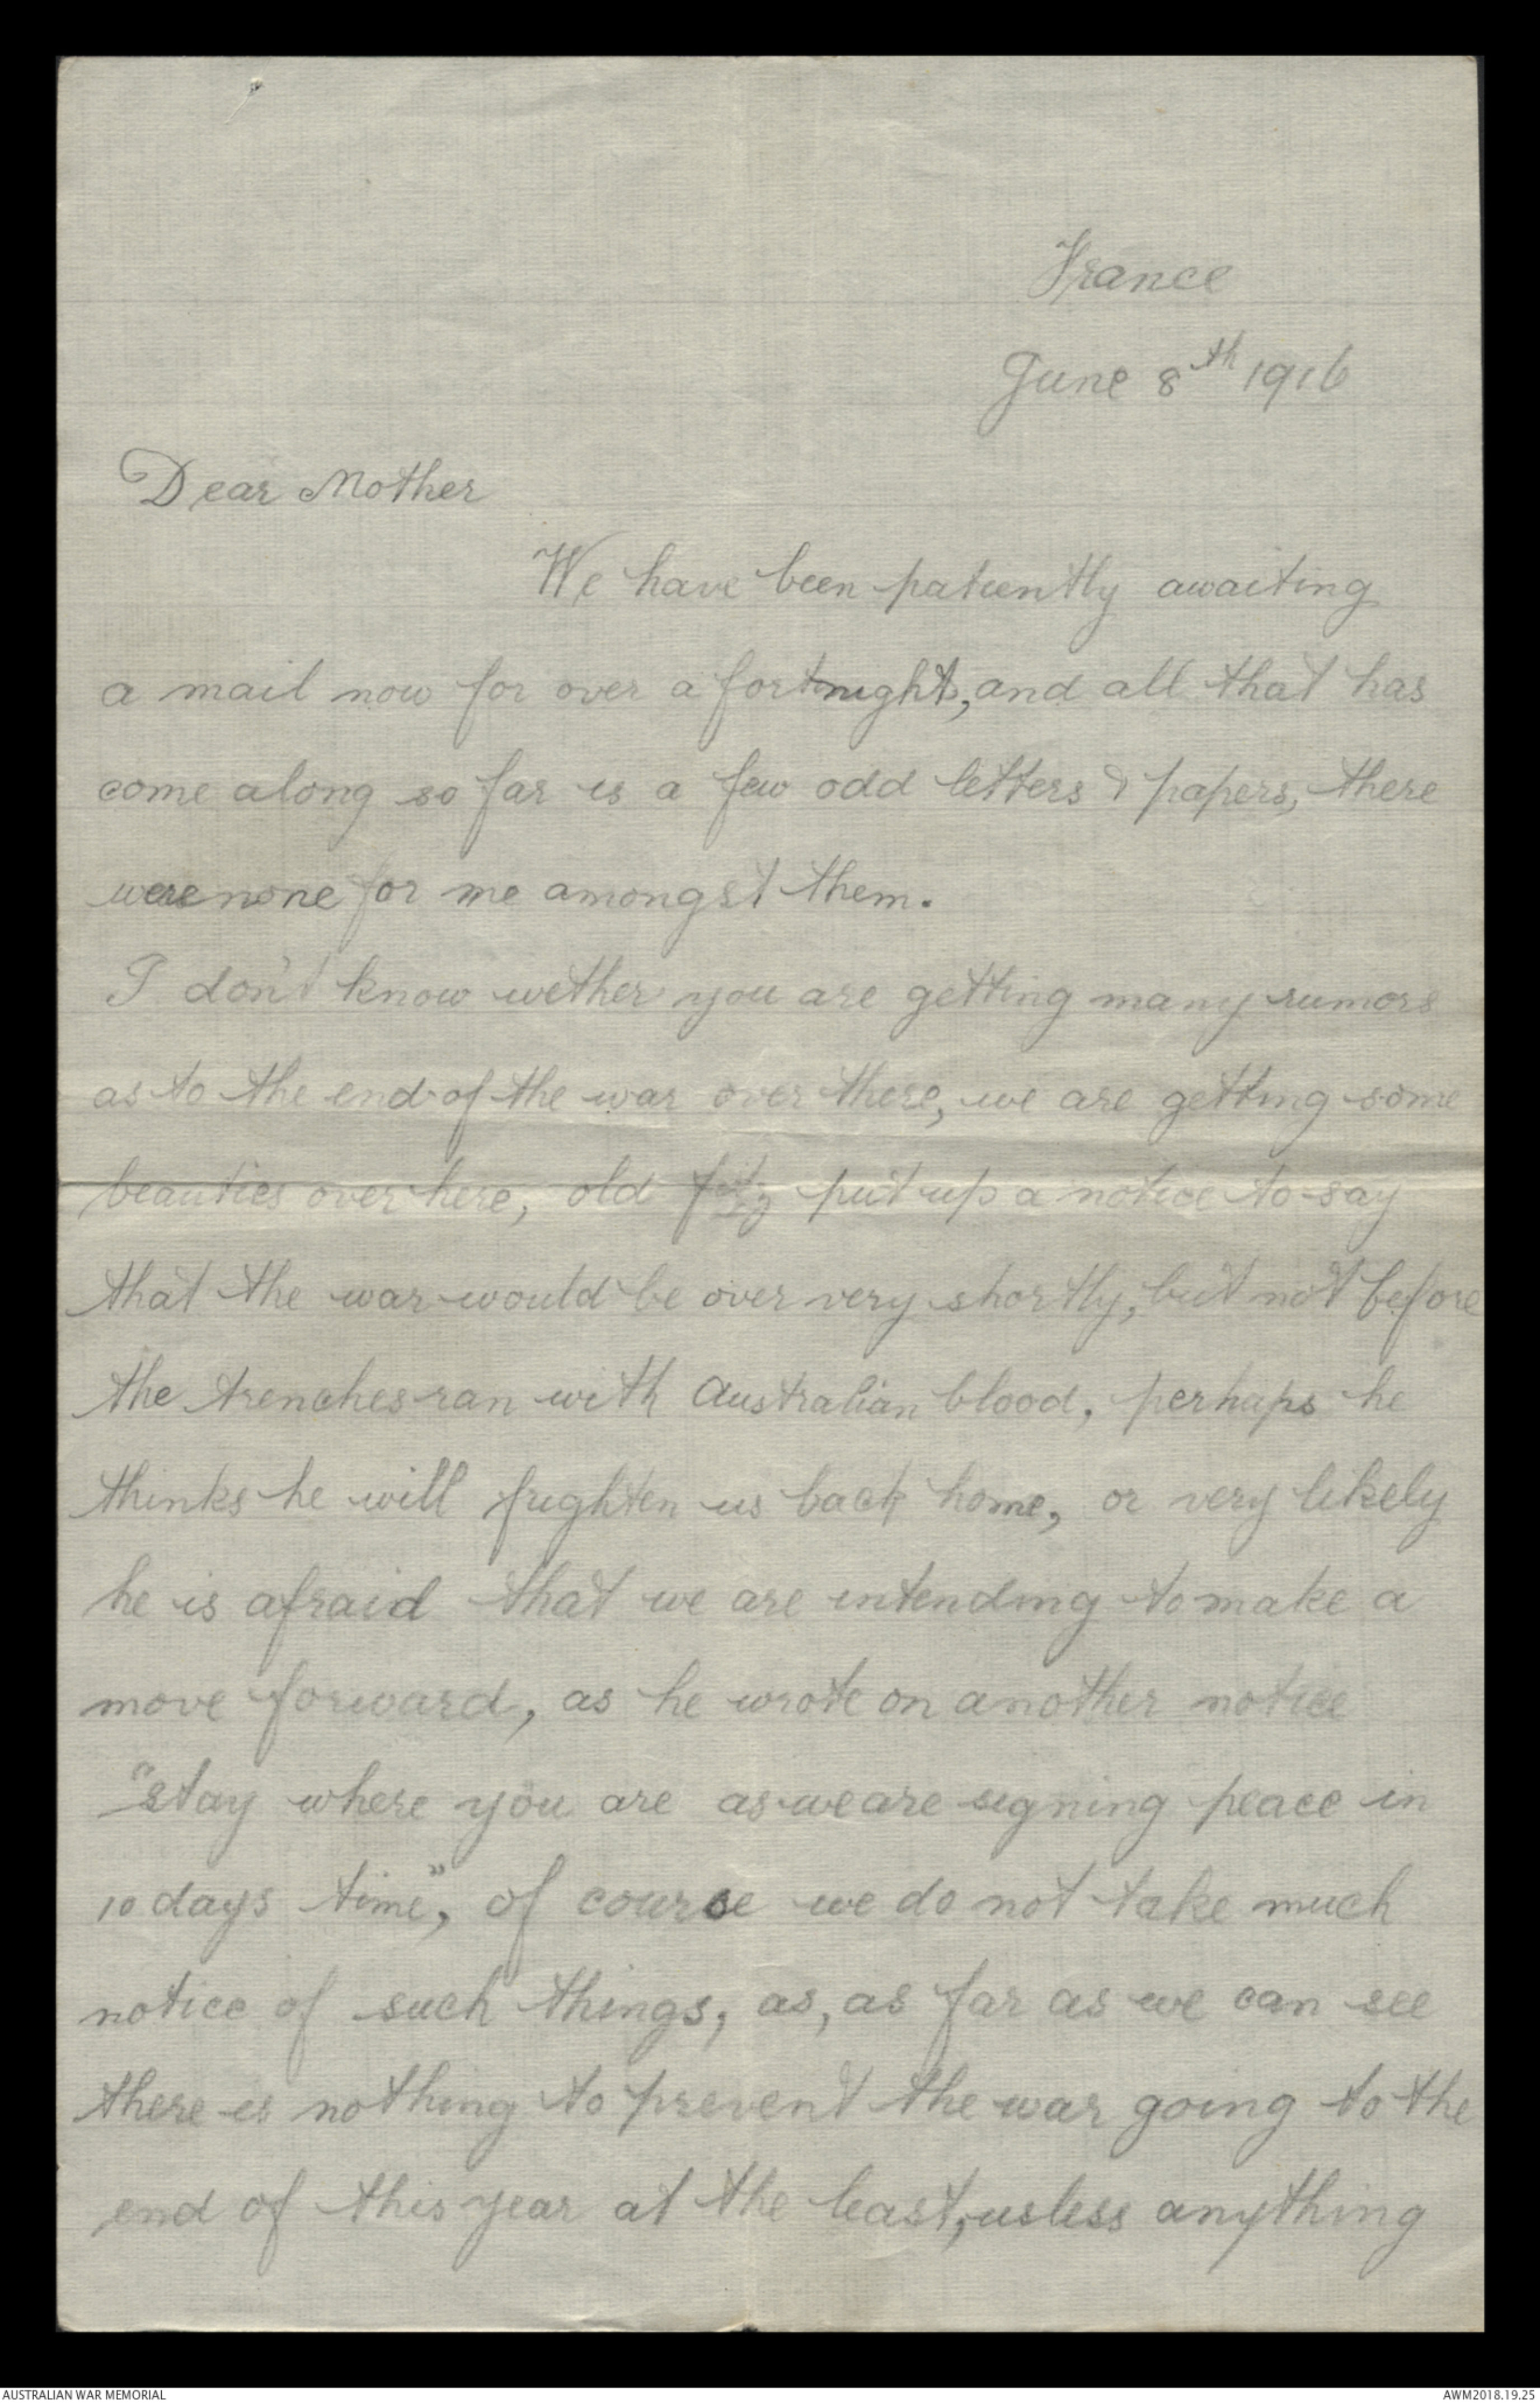 France
June 8th 1916
Dear Mother
We have been patiently awaiting
a mail now for over a fortnight, and all that has
come along so far is a few odd letters & papers, there
were none for me amongst them.
I don't know wether you are getting many rumors
as to the end of the war over there, we are getting some
beauties over here, old put up a notice to say
that the war would be over very shortly, but not before
the trenches ran with Australian blood, perhaps he
thinks he will frighten us back home, or very likely
he is afraid that we are intending to make a
move forward, as he wrote on another notice
"stay where you are as we are signing peace in
10 days time", of course we do not take much
notice of such things, as, as far as we can see
there is nothing to prevent the war going to the
end of this year at the least, usless anything
AUSTRALIAN WAR MEMORIAL
AWM2018.19.25